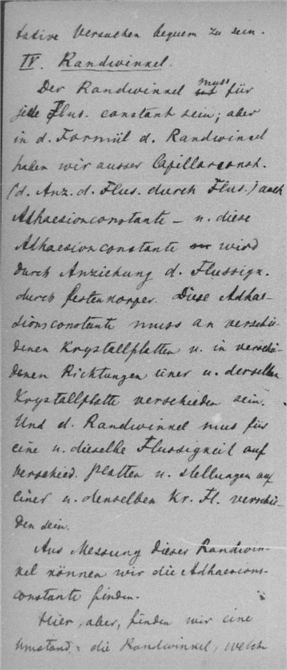 tative Versuchen bequem zu sein.
IV. Randwinkel.
Der Randwinkel muss für
jede Flus. constant sein; aber
in d. Formül d. Randwinkel
haben wir ausser Capillarconst.
(d. Anz. d. Flus. durch Flus.) auch
Adhaesionconstante – u. diese
Adhaesionconstante wird
durch Anziehung d. Flussigk.
durch festenkorper. Diese Adhae-
sionsconstante muss an verschie-
denen Krystallplatten u. in verschie-
denen Richtungen einer u. derselben
Krystallplatte verschieden sein.
Und d. Randwinkel mus für
eine u. dieselbe Flussigkeit auf
verschied. platten u. stellungen auf
einer u. denselben Kr. Fl. verschie-
den sein.
Aus Messung dieser Randwin-
kel können wir die Adhaesions-
constante finden.
Hier, aber, finden wir eine
Umstand: die Randwinkel, welch